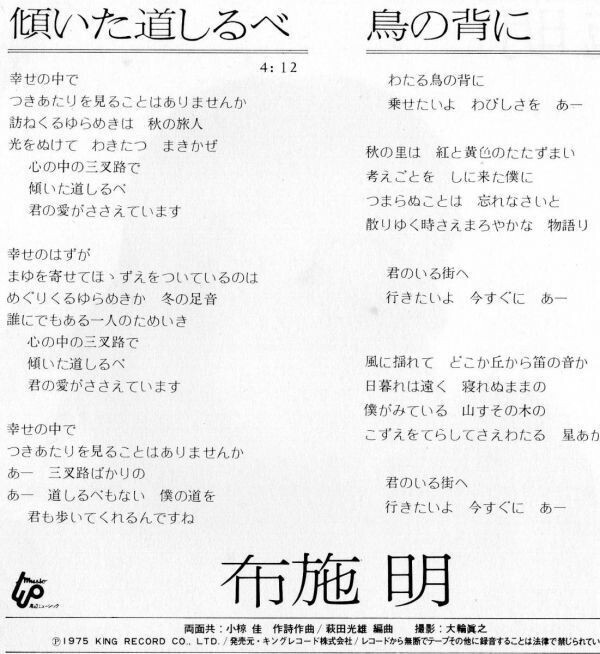 傾いた道しるべ
4:12
幸せの中で
つきあたりを見ることはありませんか
訪ねくるゆらめきは 秋の旅人
光をぬけて わきたつ まきかぜ
心の中の三叉路で
傾いた道しるべ
君の愛がささえています
幸せのはずが
まゆを寄せてほゝずえをついているのは
めぐりくるゆらめきか 冬の足音
誰にでもある一人のためいき
心の中の三叉路で
傾いた道しるべ
君の愛がささえています
幸せの中で
つきあたりを見ることはありませんか
あー 三叉路ばかりの
あー 道しるべもない 僕の道を
君も歩いてくれるんですね
鳥の背に
わたる鳥の背に
乗せたいよ わびしさを あー
秋の里は 紅と黄色のたたずまい
考えごとを しに来た僕に
つまらぬことは 忘れなさいと
散りゆく時さえまろやかな 物語り
君のいる街へ
行きたいよ 今すぐに あー
風に揺れて どこか丘から笛の音か
日暮れは遠く 寝れぬままの
僕がみている 山すその木の
こずえをてらしてさえわたる 星あか
君のいる街へ
行きたいよ 今すぐに あー
布施 明
music
渡辺ミュージック
両面共:小椋 佳 作詩作曲/萩田光雄 編曲 撮影:大輪眞之
Ⓟ1975 KING RECORD CO., LTD./発売元・キングレコード株式会社/レコードから無断でテープその他に録音することは法律で禁じられてい